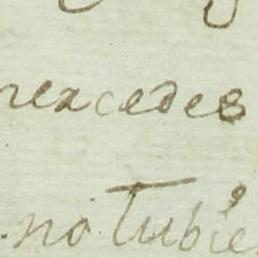 rexcedes
no tubie